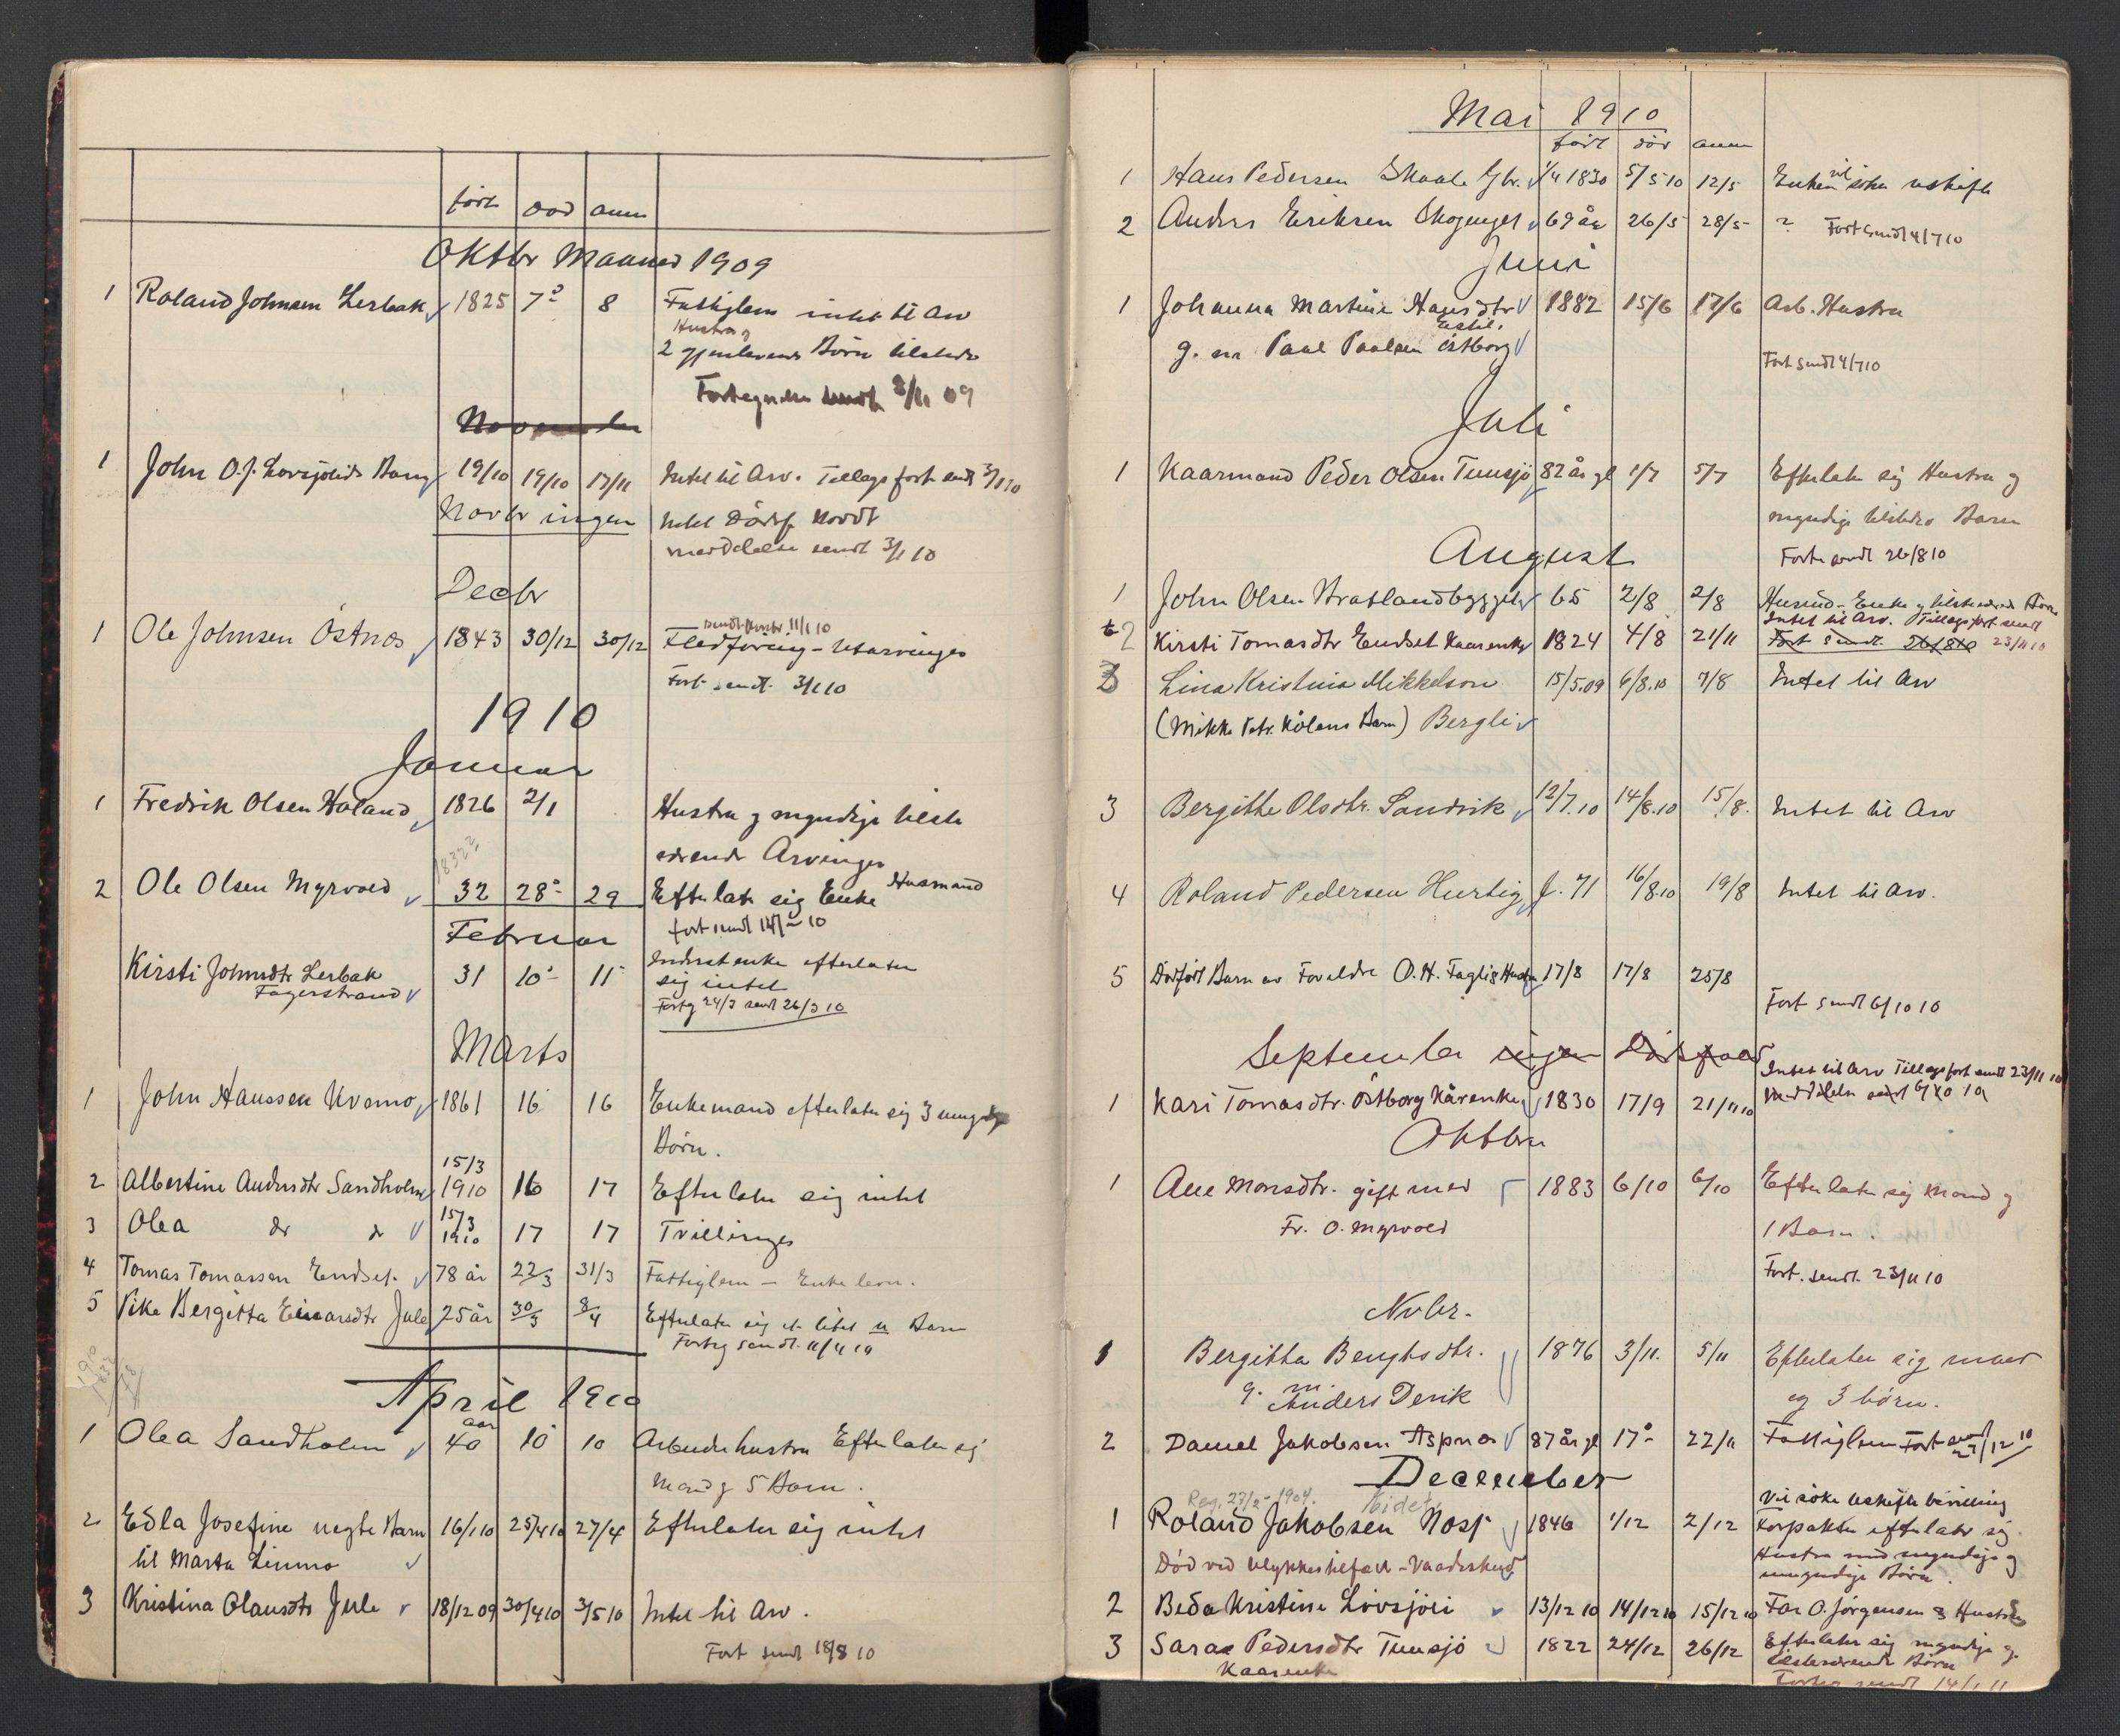 født død anm
Oktbr Maaned 1909
1 Roland Johnsen Lerbak 1825 7⁰ 8 Fattiglem intet til Arv
Hustru og
2 gjenlevende Børn tilstede
Fortegnelse sendt 3/11 09
November
1 John O.J. Lovsjølids Barn 19/10 19/10 17/11 Intet til Arv. Tillægs fort. sendt 3/1 10
Novbr ingen Intet Dødsf.
meddelelse sendt 3/1 10
Decbr
sendt 11/1 10
1 Ole Johnsen Østnes 1843 30/12 30/12 Fledføring - Utarvinger
Fort. sendt 3/1 10
1910
Januar
1 Fredrik Olsen Haland 1826 2/1 Hustru og myndige tilste
værende Arvinger
1832?
2 Ole Olsen Myrvold 32 28 29 Efterlater sig Enke Husmand
fort sendt 10
Februar
Kirsti Johnsdtr Lerbak 31 10 11 Inderst enke efterlater
Fagerstrand sig intet
Fortg 24/3 sendt 26/3 10
Marts
1 John Hanssen Kvemo 1861 16 16 Enkemand efterlater sig 3 umynd.
Børn.
15/3
2 Albertine Andersdtr Sandholm 1910 16 17 Efterlater sig intet
15/3
3 Olea do do 1910 17 17 Tvillinger
4 Tomas Tomassen Endset. 78 år 22/3 31/3 Fattiglem - Enke lever.
5 Pike Bergitta Einarsdtr Jule 25 år 30/3 8/4 Efterlater sig et litet u Barn
Fortg sendt 11/4 10
April 1910
aar
1 Olea Sandholm 40 10 10 Arbeiderhustru Efterlater sig
Mand og 5 Barn.
2 Edla Josefine uegte Barn 16/1 10 25/4 10 27/4 Efterlater sig intet
til Marta Linmo
3 Kristina Olausdtr Jule 18/12 09 30/4 10 3/5 10 Intet til Arv.
Fort sendt 18/8 10
Mai 1910
født død anm
1 Hans Pedersen Skaale Gbr. 1/4 1830 5/5 10 12/5 Enken vil søke uskifte
2 Anders Eriksen Skogenget 69 år 26/5 28/5 ? Fort sendt 4/7 10
Juni
1 Johanna Martine Hansdtr 1882 15/6 17/6 Arb. Hustru
g. m. Paal Paalsen Østborg
Fort sendt 4/7 10
Juli
1 Kaarmand Peder Olsen Tunsjø 82 år gl 1/7 5/7 Efterlater sig Hustru og
myndige tilstede Barn
August Forte sendt 26/8 10
1 John Olsen Kratlandbygget 65 2/8 2/8 Husmd - Enke og tilsteværende Børn
Intet til Arv. Tillægsfort sendt
2 Kirsti Tomasdtr Endset Kaarenke 1824 4/8 21/11 Fort sendt 26/8 10 23/11 10
Lina Kristina Mikkelson 15/5.09 6/8.10 7/8 Intet til Arv
(Mikke Petr. Kølens Barn) Bergli
3 Bergitte Olsdtr. Sandvik 12/7.10 14/8.10 15/8. Intet til Arv
4 Roland Pedersen Hurtig f. 71 16/8.10 19/8 Intet til Arv.
5 Dødfødt Barn av Forældre O.H. Faglig Hustru 17/8 17/8 25/8
Fort sendt 6/10 10
September ingen Dødsfald Intet til Arv Tillægs fort sendt 23/11 10
Meddelelse sendt 6/10 10
1 Kari Tomasdtr. Østborg Kårenke 1830 17/9 21/11 10
Oktbr
1 Ane Monsdtr. gift med 1883 6/10 6/10 Efterlater sig Mand og
Fr. O. Myrvold 1 Barn.
Fort. sendt. 23/11 10
Nvbr.
1 Bergitta Bengtsdtr. 1876 3/11. 5/11 Efterlater sig mand
g. m. Anders Derik og 3 børn.
2 Daniel Jakobsen Aspnes 87 år gl 17 22/11 Fattiglem Fort sendt /12 10
December
Reg. 27/2 - 1904. Vil søke uskifte bevilling
1 Roland Jakobsen Mosf 1846 1/12 2/12 Forpakter efterlater sig
Død ved Ulykkestilfæld - Vaadeskud Hustru med myndige og
umyndige Børn.
2 Beda Kristine Lovsjøli 13/12 10 14/12 10 15/12 10 Far O. Jørgensen & Hustru
3 Sara Pedersdtr Tunsjø 1822 24/12 26/12 Efterlater sig myndige og
Kaarenke tilsteværende Børn
Forteg sendt 14/1 11